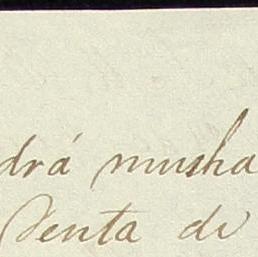 drá musha
Venta de